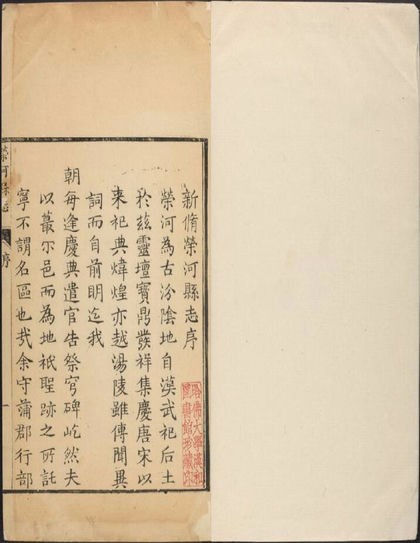 新脩榮河縣志序
榮河為古汾陰地自漢武祀后土
於茲靈壇寶鼎發祥集慶唐宋以
来祀典煒煌亦越湯陵雖傳聞異
詞而自前明迄我
朝每逢慶典遣官告祭穹碑屹然夫
以蕞尔邑而為地祇聖跡之所託
寧不謂名區也㢤余守蒲郡行部
榮河縣志
序
一
哈佛大學漢和
圖書館珍藏印